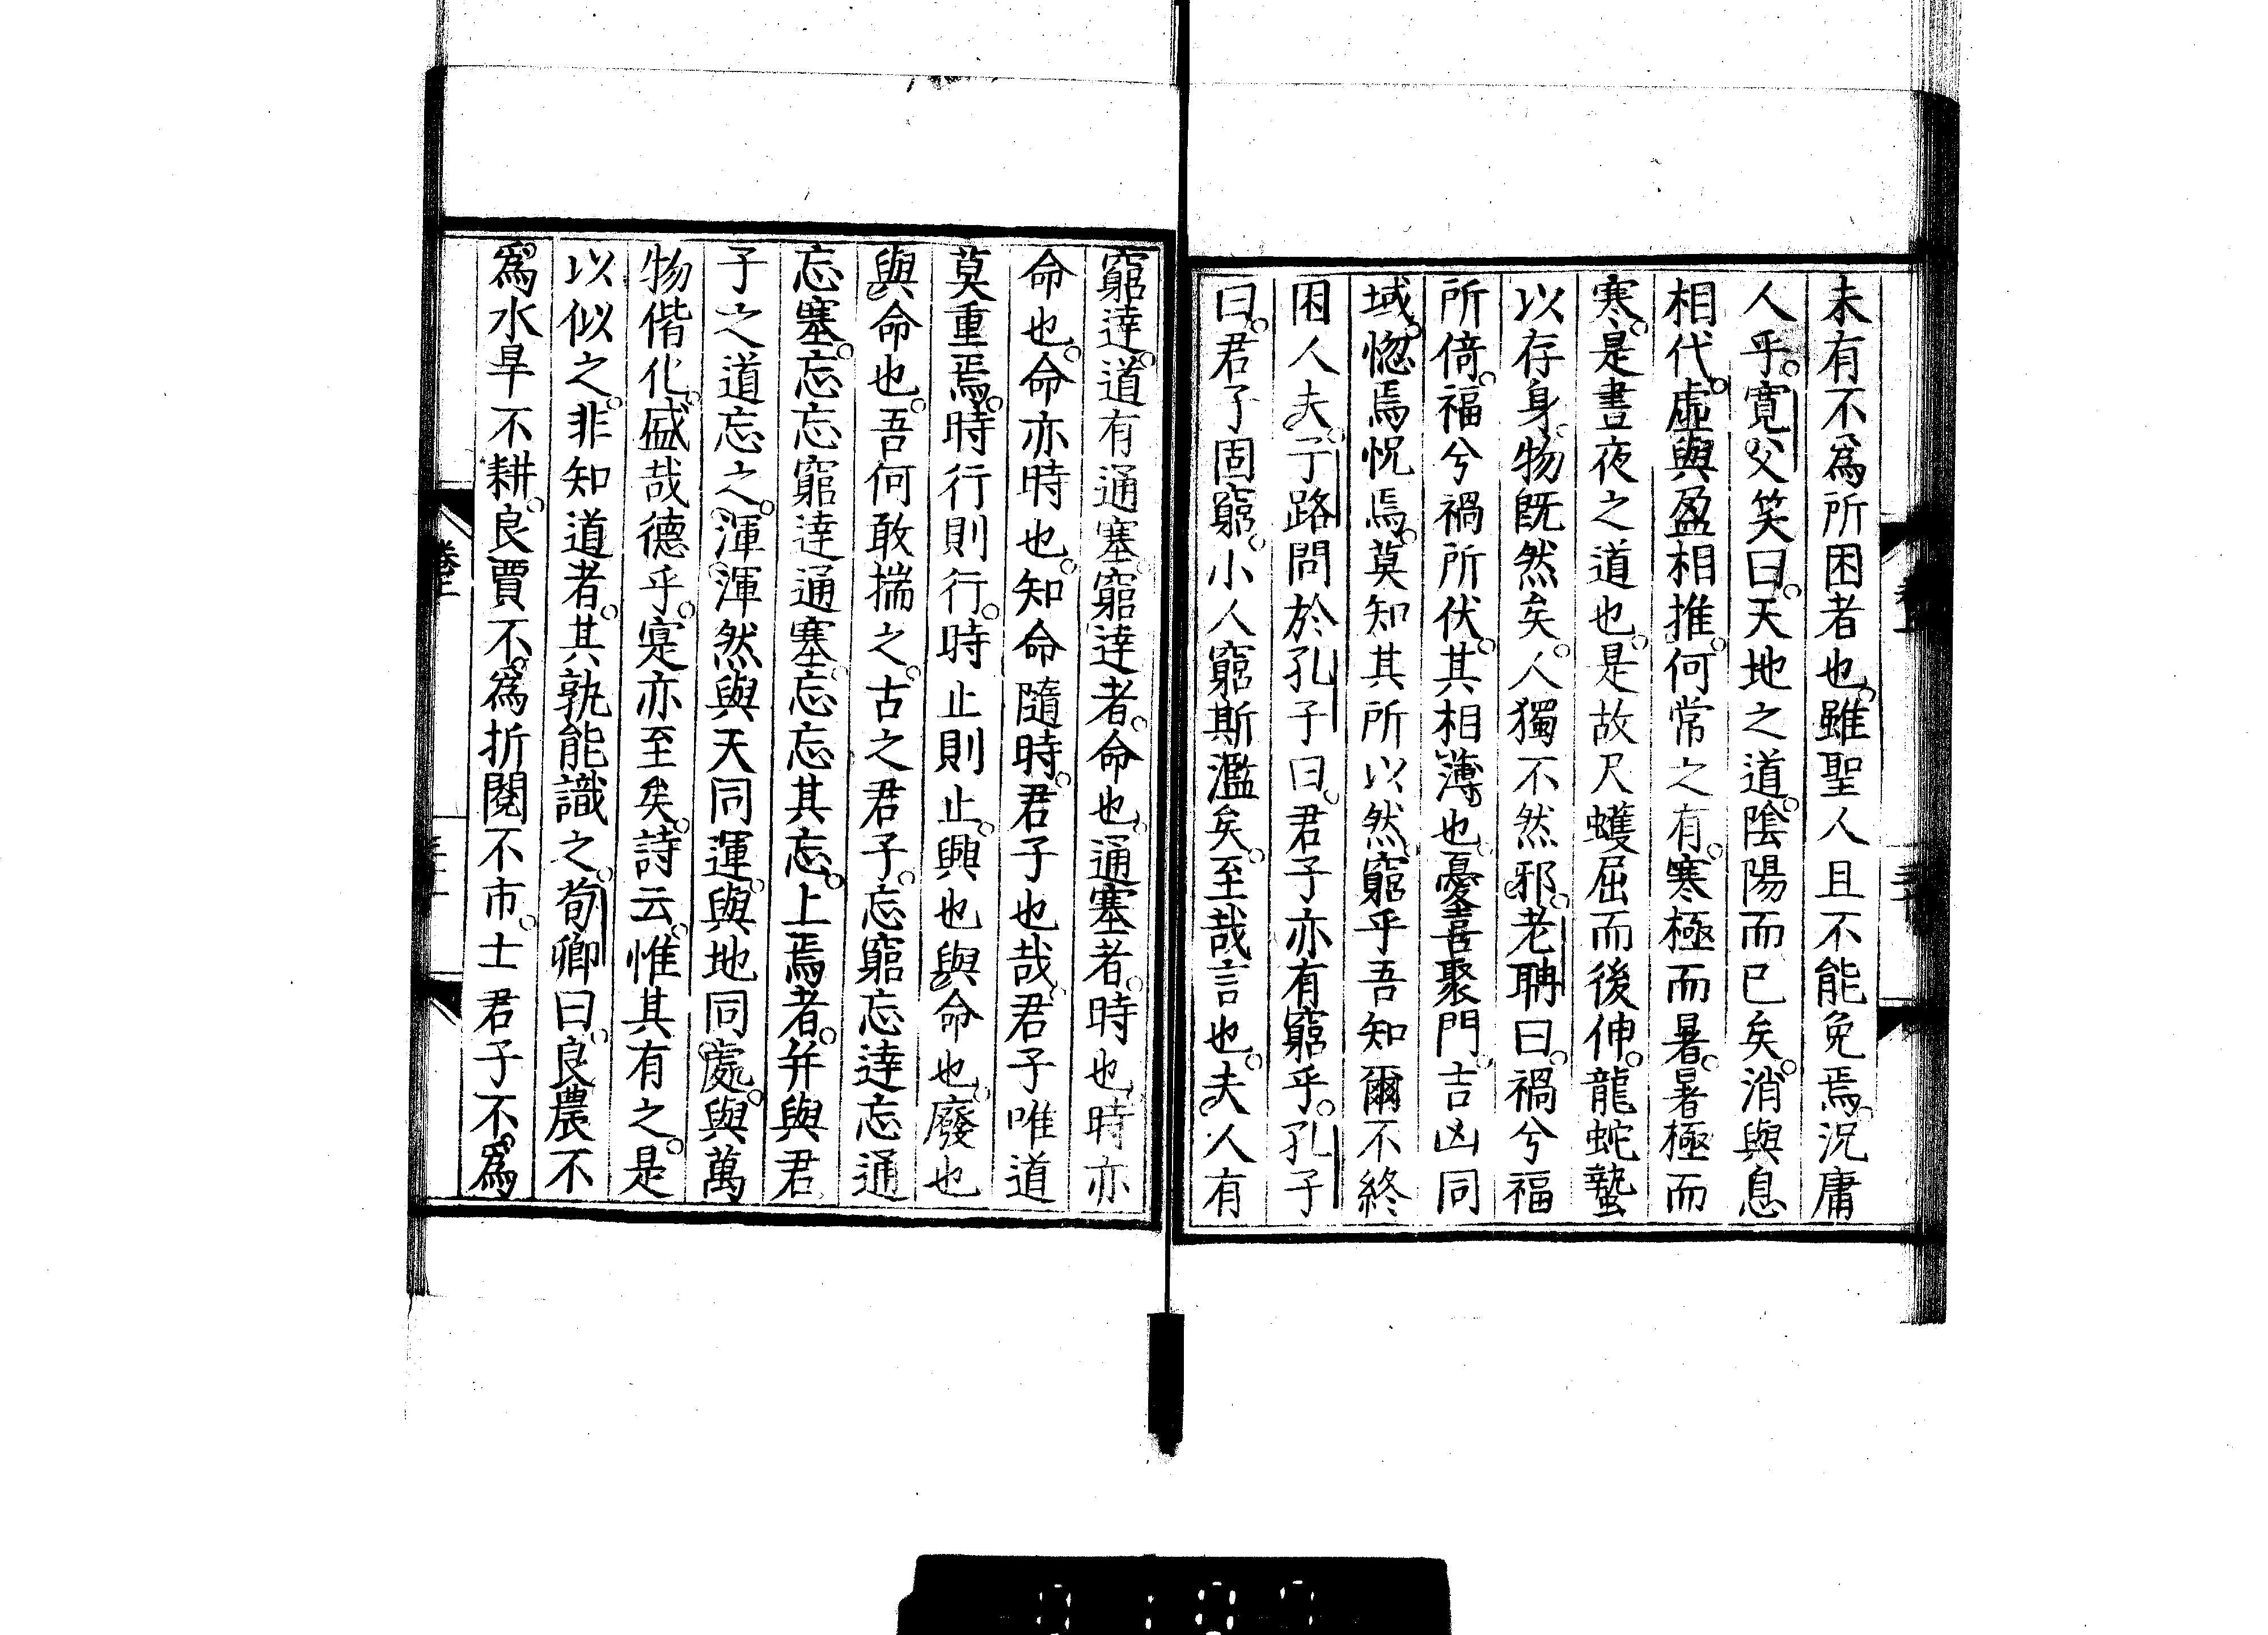 未有不爲所困者也。雖聖人且不能免焉。況庸
人乎。寛父笑曰。天地之道。陰陽而已矣。消與息
相代。虛與盈相推。何常之有。寒極而暑。暑極而
寒。是晝夜之道也。是故尺蠖屈而後伸。龍蛇蟄
以存身。物既然矣。人獨不然邪。老聃曰。禍兮福
所倚。福兮禍所伏。其相薄也。憂喜聚門。吉凶同
域。惚焉怳焉。莫知其所以然。窮乎吾知爾不終
困人夫。子路問於孔子曰。君子亦有窮乎。孔子
曰。君子固窮。小人窮斯濫矣。至哉言也。夫人有
窮達。道有通塞。窮達者。命也。通塞者。時也。時亦
命也。命亦時也。知命隨時。君子也哉。君子唯道
莫重焉。時行則行。時止則止。興也與命也。廢也
與命也。吾何敢揣之。古之君子。忘窮忘達忘通
忘塞。忘忘窮達通塞。忘忘其忘。上焉者。并與君
子之道忘之。渾渾然與天同運。與地同處。與萬
物偕化。盛哉德乎。寔亦至矣。詩云。惟其有之。是
以似之。非知道者。其孰能識之。荀卿曰。良農不
爲水旱不耕。良賈不爲折閱不市。士君子不爲